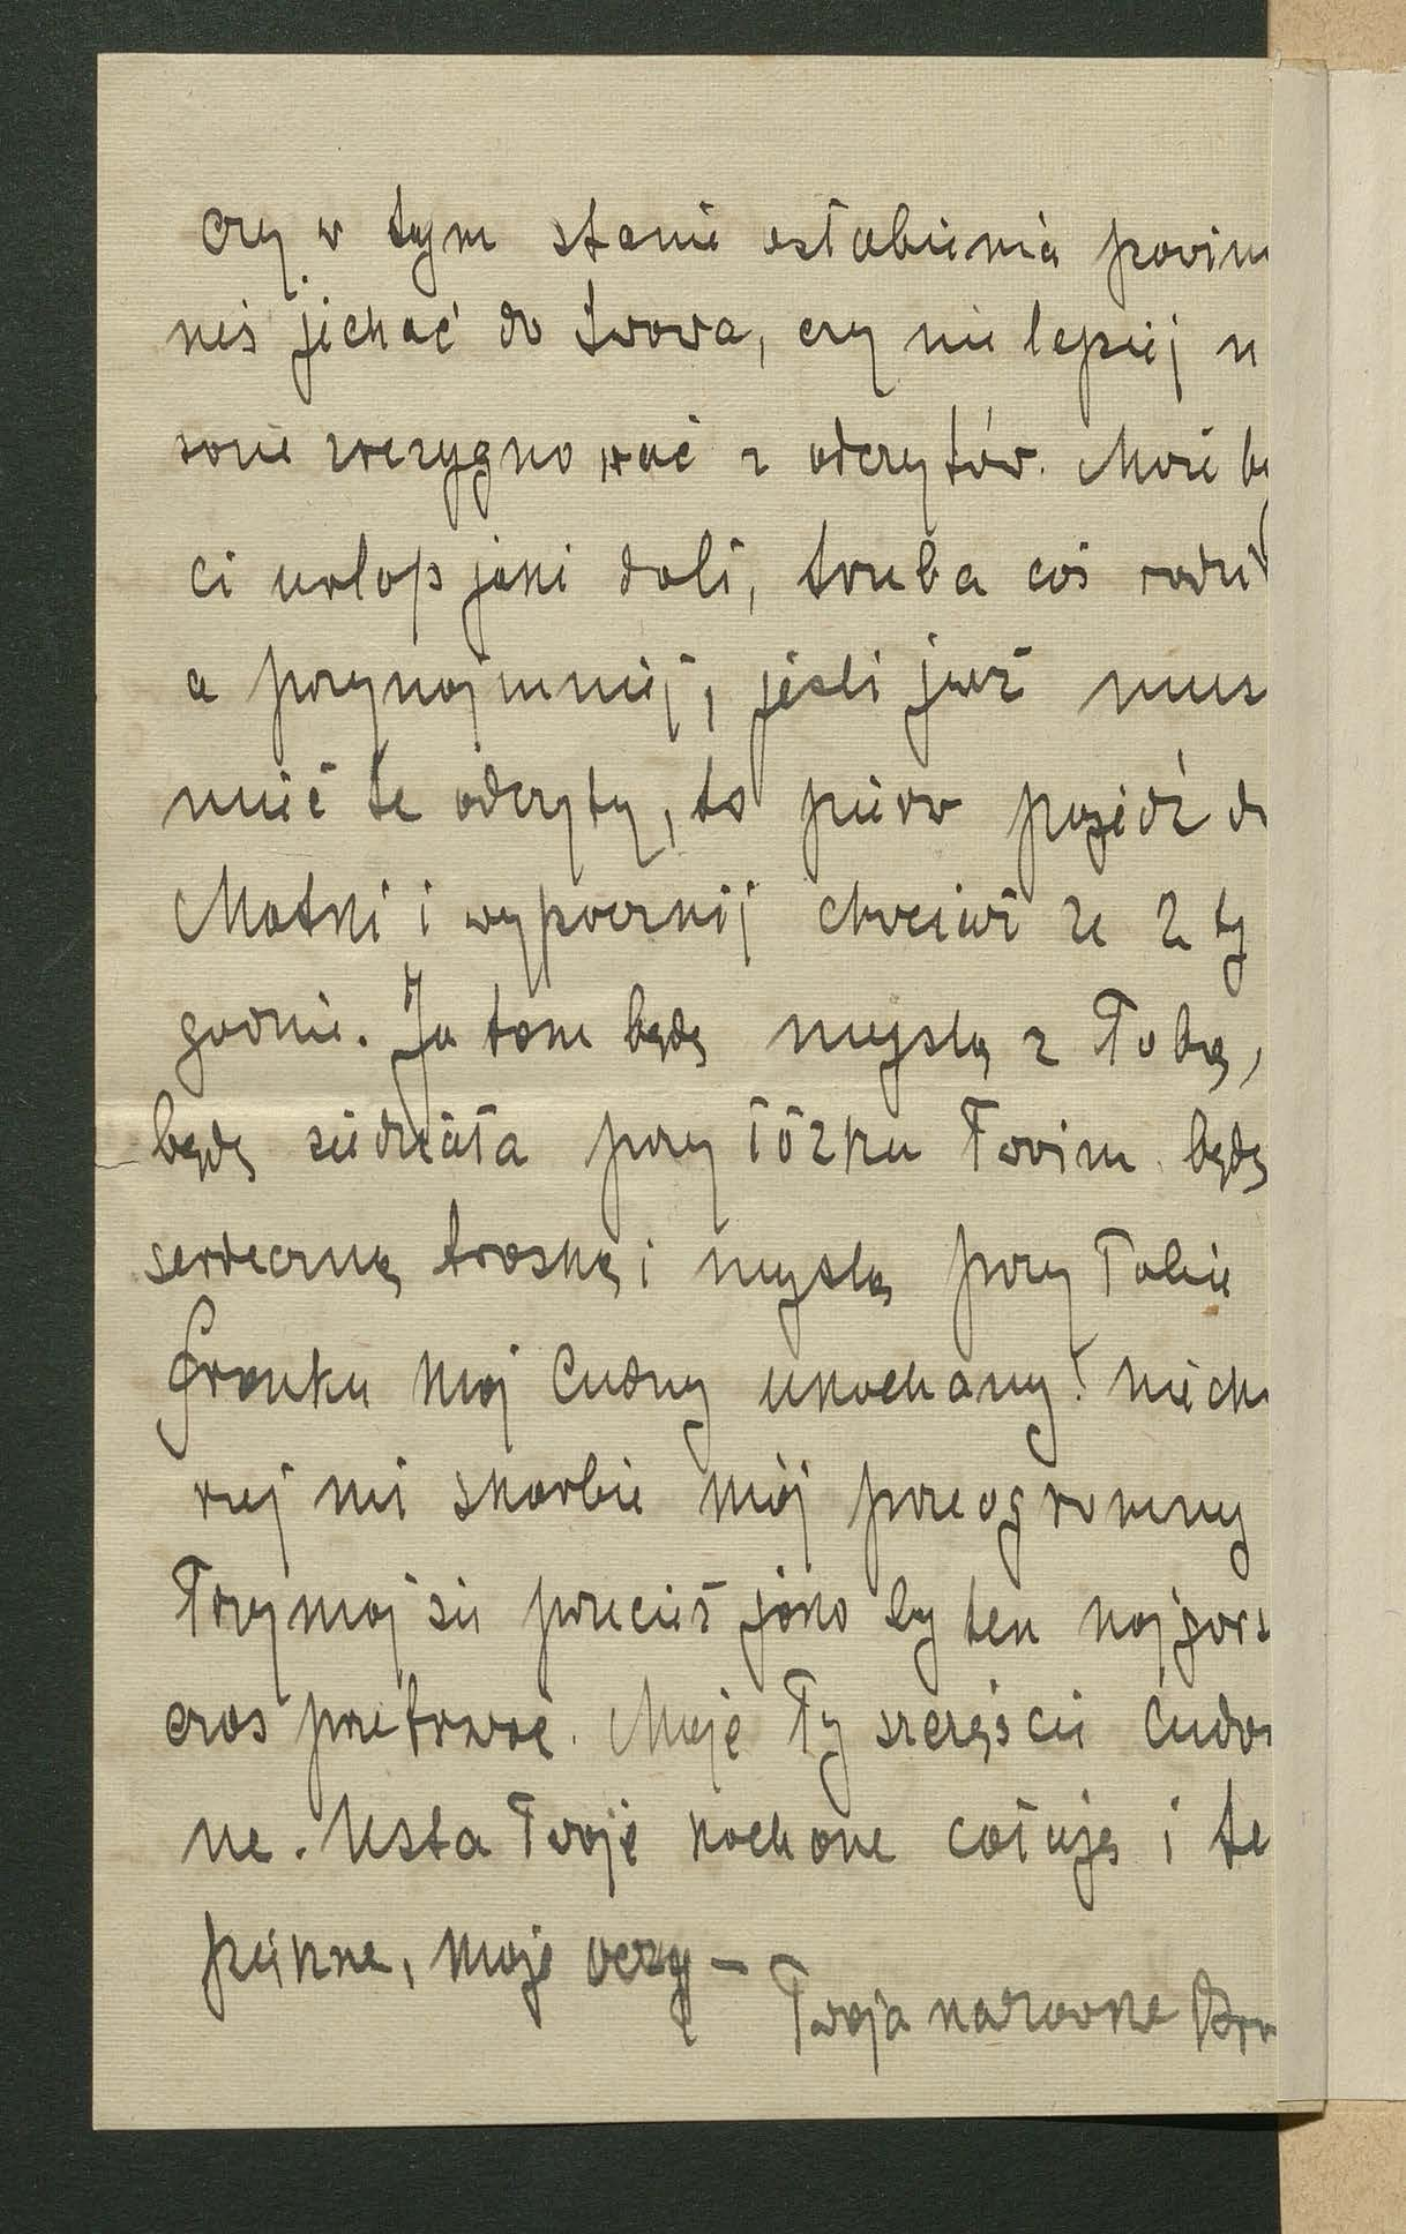 czy w tym stanie osłabienia powin
neś jechać do Lwowa, czy nie lepiej
sowie zrezygnować z odczytów. Może by
ci urlop jaki dali, trzeba coś radzi
a przynajmniej, jeśli już mus
mieć te odczyty, to pierw pojedź d
Matki i wypocznij chociaż ze 2 ty
godnie. Ja tam będę myślą z Tobą,
będę siedziała przy łóżku Twoim będę
serdeczną troską i myślą przy Tobie
Franku mój Cudny ukochany! nie cho
ruj mi skarbie mój przeogromny
Trzymaj się przecież jako by ten najgors
czas przetrwać. Moje Ty szczęście Cudo
ne. Usta Twoje kochane całuję i te
piękne, moje oczy –
Twoja na zawsze Bro